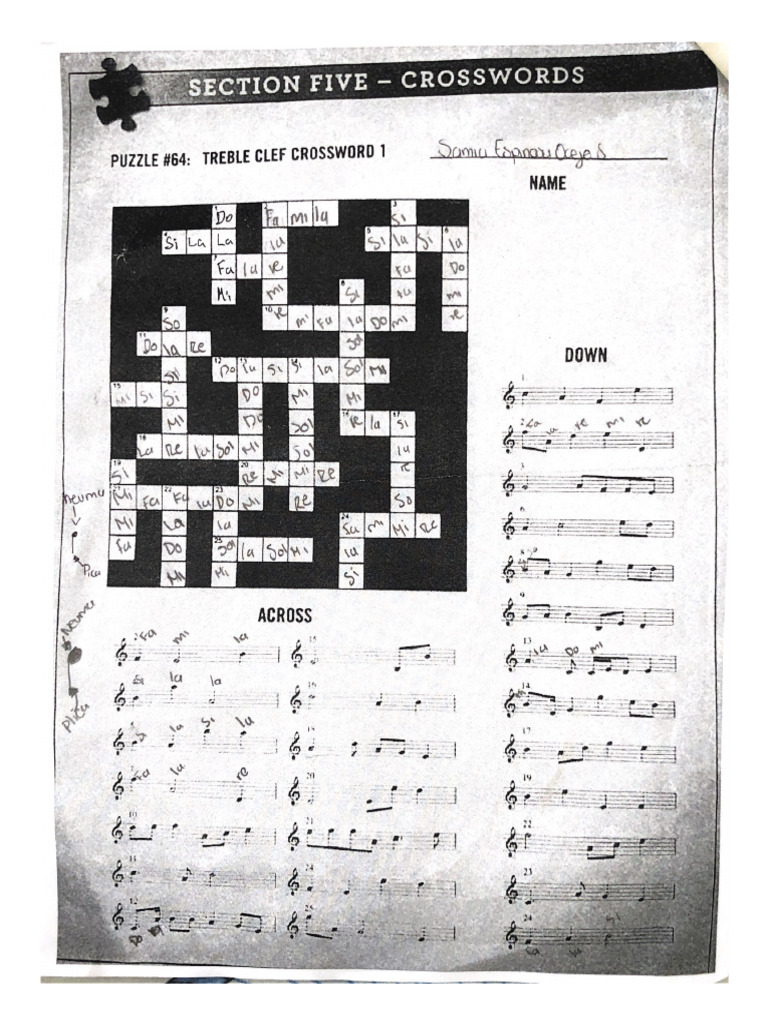 SECTION FIVE – CROSSWORDS
PUZZLE #64: TREBLE CLEF CROSSWORD 1
NAME
1 Do 2 Fa mi la 3 Si
4 Si La La la 5 Si la Si 6 la
7 Fa la re fa Do
Mi mi 8 Si fa mi
9 So 10 re mi Fa la Do mi re
11 Do la Re Sol
Sol 12 Do 13 la Si 14 Si la Sol Mi
15 Mi Si Si Do Mi Mi
Mi Do Sol 16 Re la 17 Si
18 La Re la Sol Mi Sol la
19 Si 20 Re Mi Mi Re re
21 Mi Fa 22 Fa la 23 Do Mi Re So
Mi La la 24 Fa mi Mi Re
Fa Do 25 Sol la Sol Mi la
Mi Mi Si
neuma
Plica
Neuma
Plica
DOWN
1
2 la re mi re
3
6
8
9
13 la Do mi
14
17
19
22
23
24
ACROSS
2 Fa mi la
la la
la Si la
Fa la re
10
11
12
15
16
18
20
21
24
25